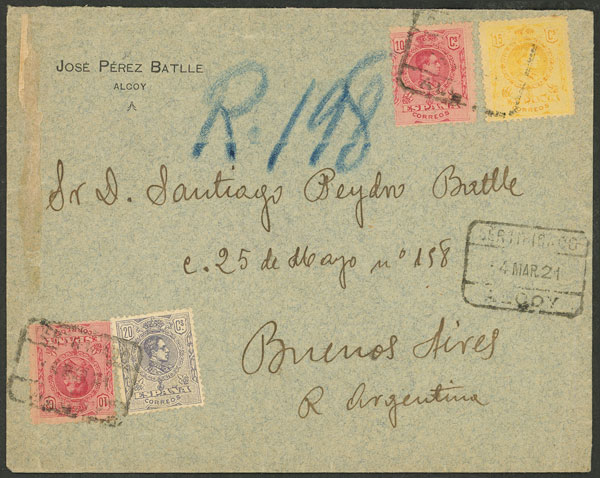 JOSÉ PÉREZ BATLLE
ALCOY
R. 198
10 Cs
ESPAÑA
CORREOS
15 Cs
CORREOS
Sr D. Santiago Peydro Batlle
c. 25 de Mayo nº 158
CERTIFICADO
4 MAR.21
ALCOY
10
20 Cs
ESPAÑA
CORREOS
Buenos Aires
R Argentina